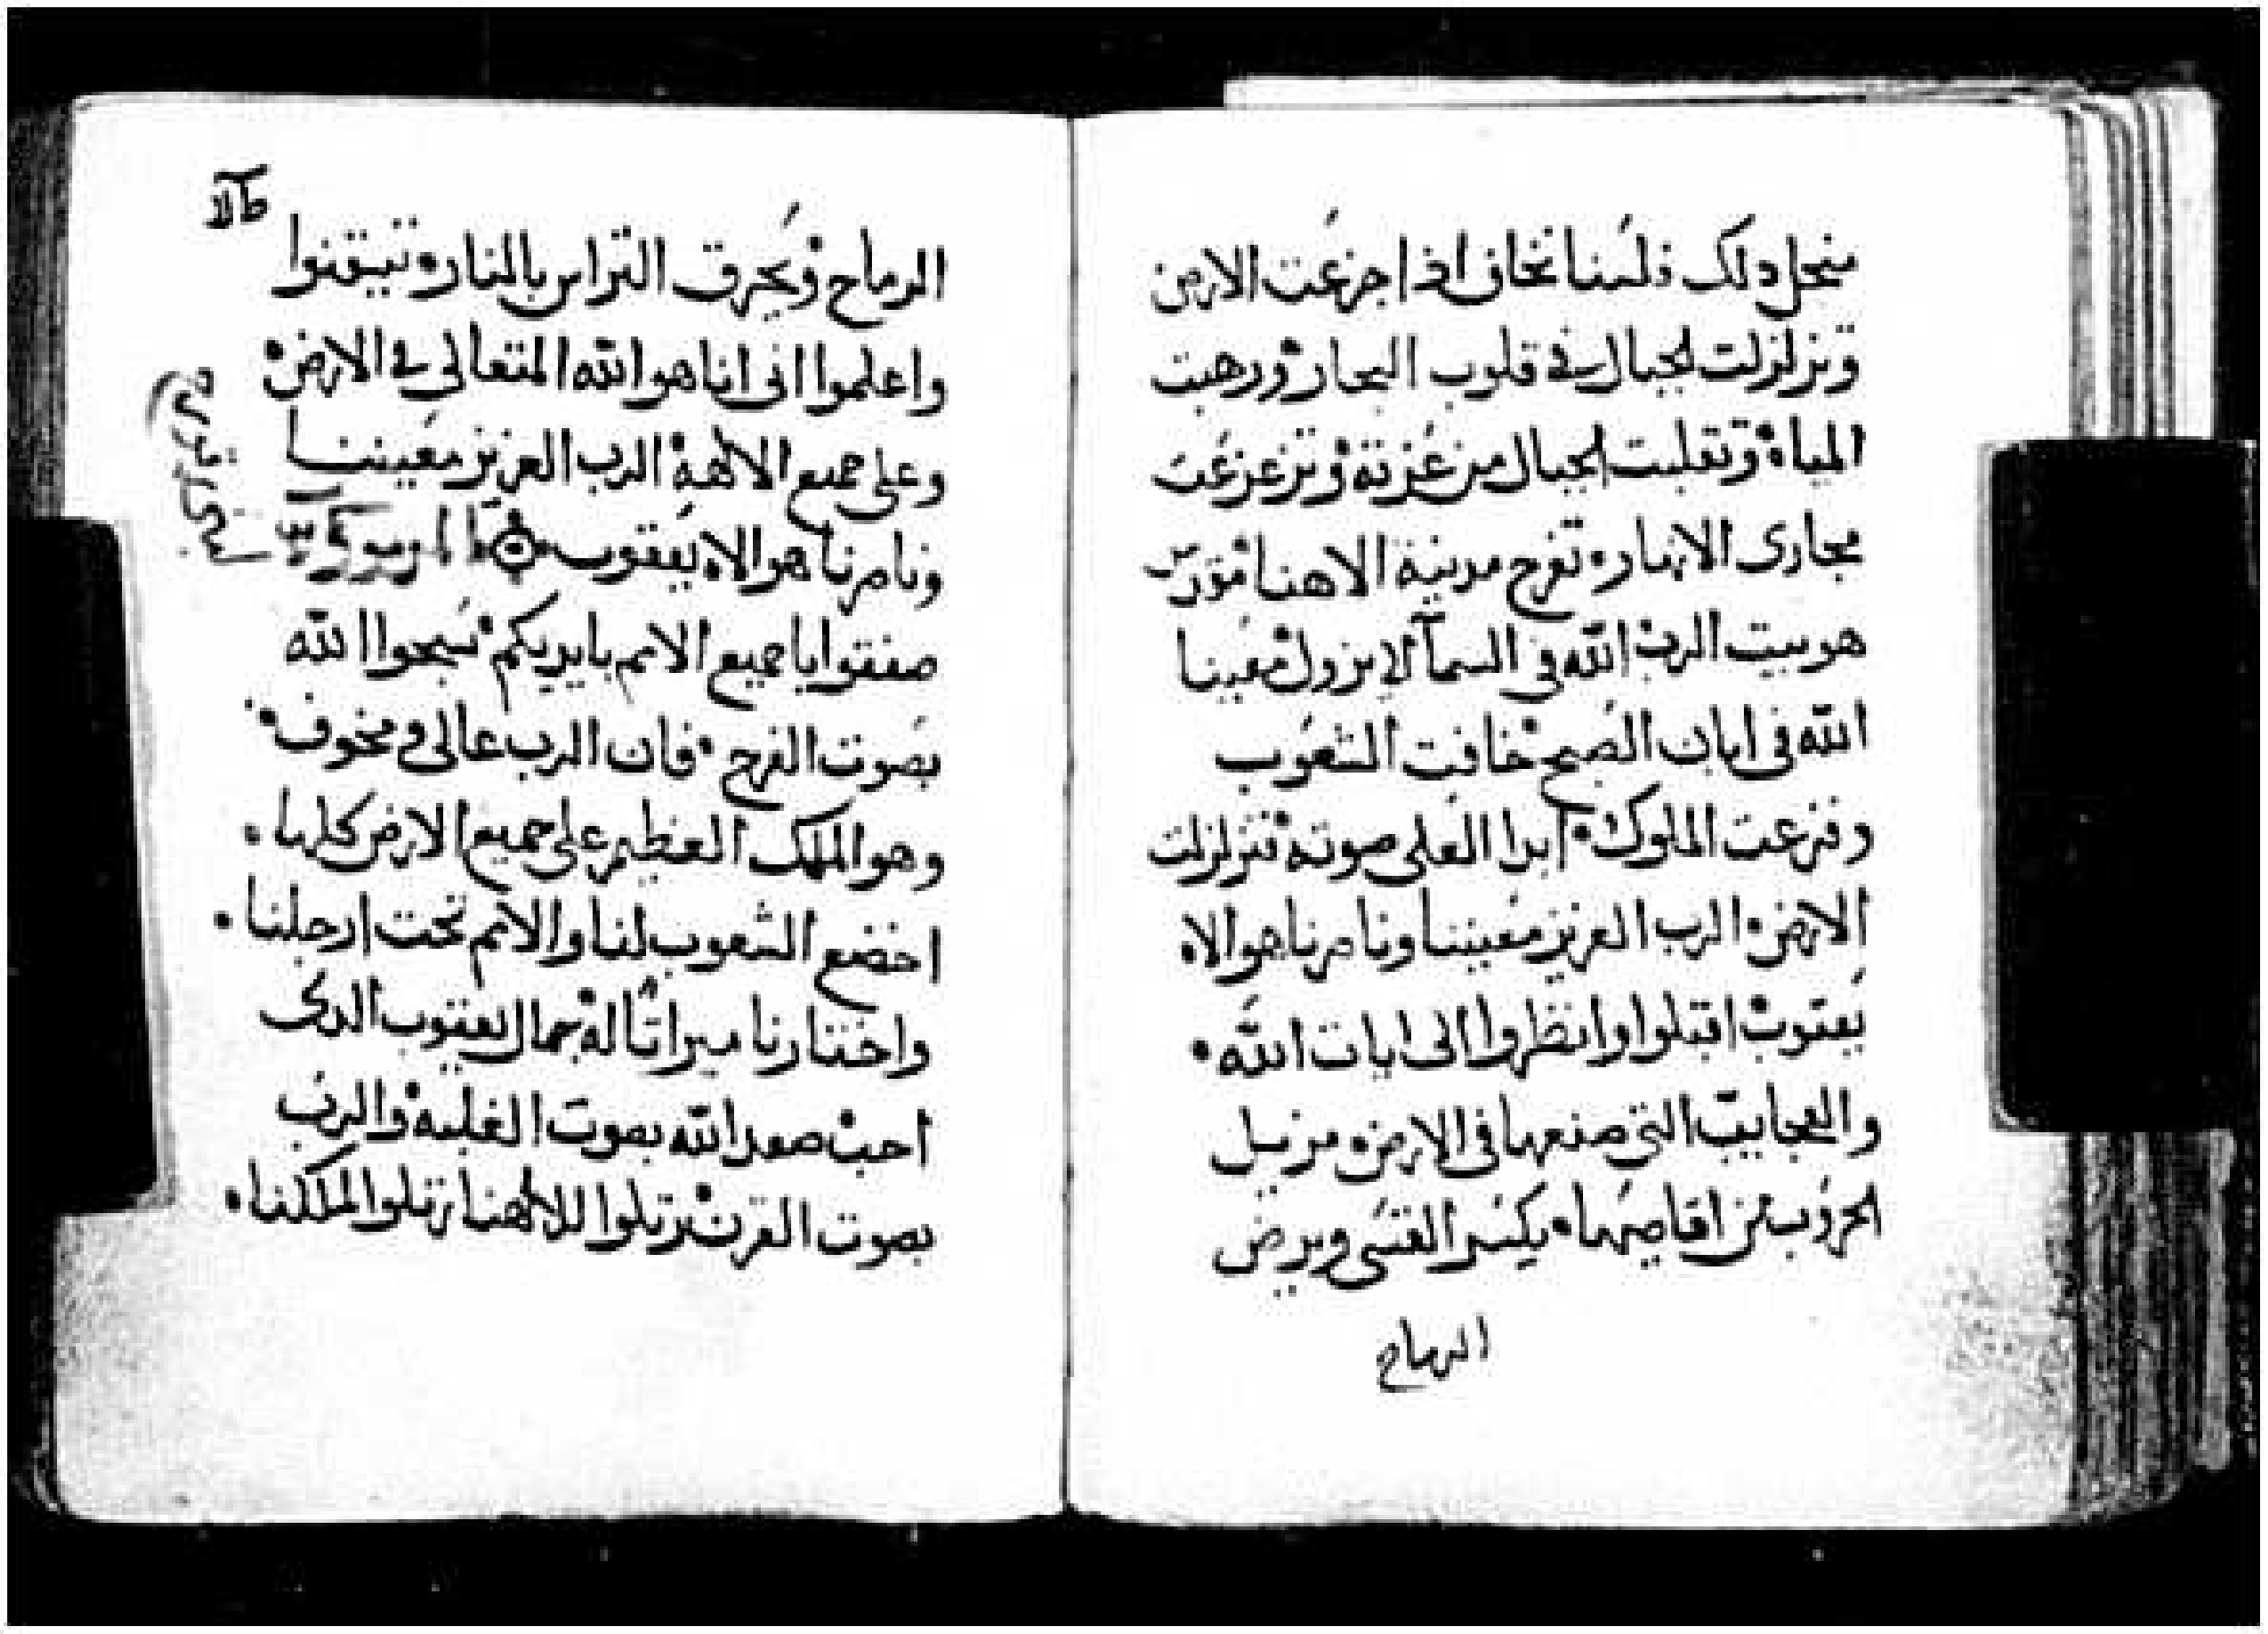 منجل دلك فلسنا نخاف اذا جزعت الارض
وتزلزلت الجبال في قلوب البحار ورهبت
المياه وتقلبت الجبال من عزته وتزعزعت
مجاري الانهار تفرح مدينة الاهنا مقدس
هو بيت الرب الله في السمآ لا يزول معينا
الله في ابان الصبح خافت الشعوب
وفزعت الملوك ابدا العلى صوته تزلزلت
الارض الرب العزيز معيننا وناصرنا هو الاه
يعقوب اقبلوا وانظروا الى ايات الله
والعجايب التي صنعها في الارض مزيل
الحروب من اقاصيها يكسر القسى ويرض
الرماح
الرماح ويحرق التراس بالنار تيقنوا
واعلموا انى انا هو الله المتعالي في الارض
وعلى جميع الالهة الرب العزيز معيننا
وناصرنا هو الاه يعقوب المزمور
صفقوا يا جميع الامم بايديكم سبحوا الله
بصوت الفرح فان الرب عالى ومخوف
وهو الملك العظيم على جميع الارض كلها
اخضع الشعوب لنا والامم تحت ارجلنا
واختارنا ميراثا له جمال يعقوب الدى
احب صعد الله بصوت الغلبة والرب
بصوت القرن رتلوا لالاهنا رتلوا لملكنا